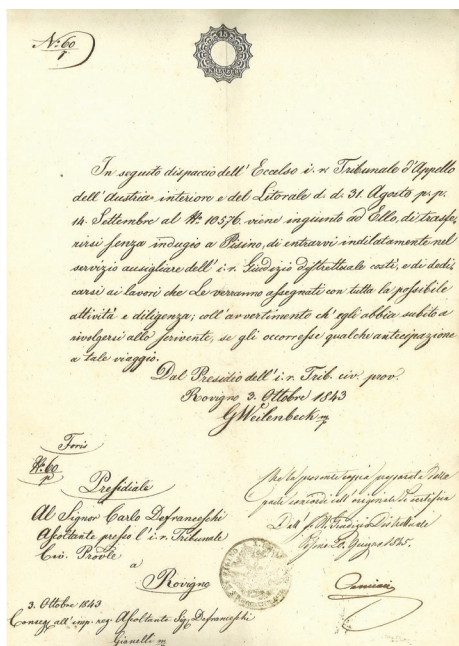 N: 60
p
In seguito dispaccio dell' Eccelso i. r. Tribunale d'Appello
dell' Austria interiore e del Litorale d. d. 31. Agosto p. p.
14. Settembre al N: 10576. viene ingiunto ad Ello, di trasfe,
rirsi senza indugio a Pisino, di entrarvi indilatamente nel
servizio ausigliare dell' i. r. Giudizio distrettuale costì, e di dedi,
carsi ai lavori che Le verranno assegnati con tutta la possibile
attività e diligenza; coll' avvertimento ch' egli abbia subito a
rivolgersi allo scrivente, se gli occorresse qualche antecipazione
a tale viaggio.
Dal Presidio dell' i. r. Trib. civ. prov.
Rovigno 3. Ottobre 1843
GWeilenbeck
Foris
N: 60
p
Presidiale
Al Signor Carlo Defranceschi
Ascoltante presso l' i. r. Tribunale
Civ. Provle
a
Rovigno
3. Ottobre 1843
Conseg. all' imp. reg. Ascoltante Sig. Defranceschi
Gianelli
Che la presente copia
parte concordi coll' originale si certifica
Dall' Giudizio Distrettuale
Pisino 20. Giugno 1845.